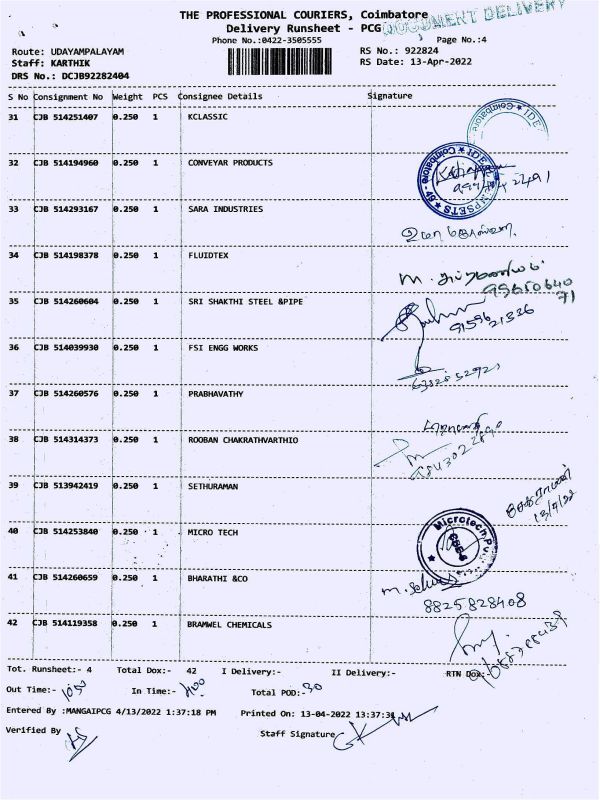 THE PROFESSIONAL COURIERS, Coimbatore
DOCUMENT DELIVERY
Delivery Runsheet - PCG
Phone No.:0422-3505555
Page No.:4
Route: UDAYAMPALAYAM
RS No.: 922824
Staff: KARTHIK
RS Date: 13-Apr-2022
DRS No.: DCJB92282404
S No Consignment No Weight PCS Consignee Details Signature
31 CJB 514251407 0.250 1 KCLASSIC
Coimbatore
32 CJB 514194960 0.250 1 CONVEYAR PRODUCTS
33 CJB 514293167 0.250 1 SARA INDUSTRIES
34 CJB 514198378 0.250 1 FLUIDTEX
35 CJB 514260604 0.250 1 SRI SHAKTHI STEEL &PIPE
9159621336
36 CJB 514039930 0.250 1 FSI ENGG WORKS
37 CJB 514260576 0.250 1 PRABHAVATHY
38 CJB 514314373 0.250 1 ROOBAN CHAKRATHVARTHIO
39 CJB 513942419 0.250 1 SETHURAMAN
13/4/22
40 CJB 514253840 0.250 1 MICRO TECH
Microtech
41 CJB 514260659 0.250 1 BHARATHI &CO
8825828408
42 CJB 514119358 0.250 1 BRAMWEL CHEMICALS
Tot. Runsheet:- 4 Total Dox:- 42 I Delivery:- II Delivery:- RTN Dox:-
Out Time:- 1050 In Time:- 1400 Total POD:- 30
Entered By :MANGAIPCG 4/13/2022 1:37:18 PM Printed On: 13-04-2022 13:37:31
Verified By Staff Signature